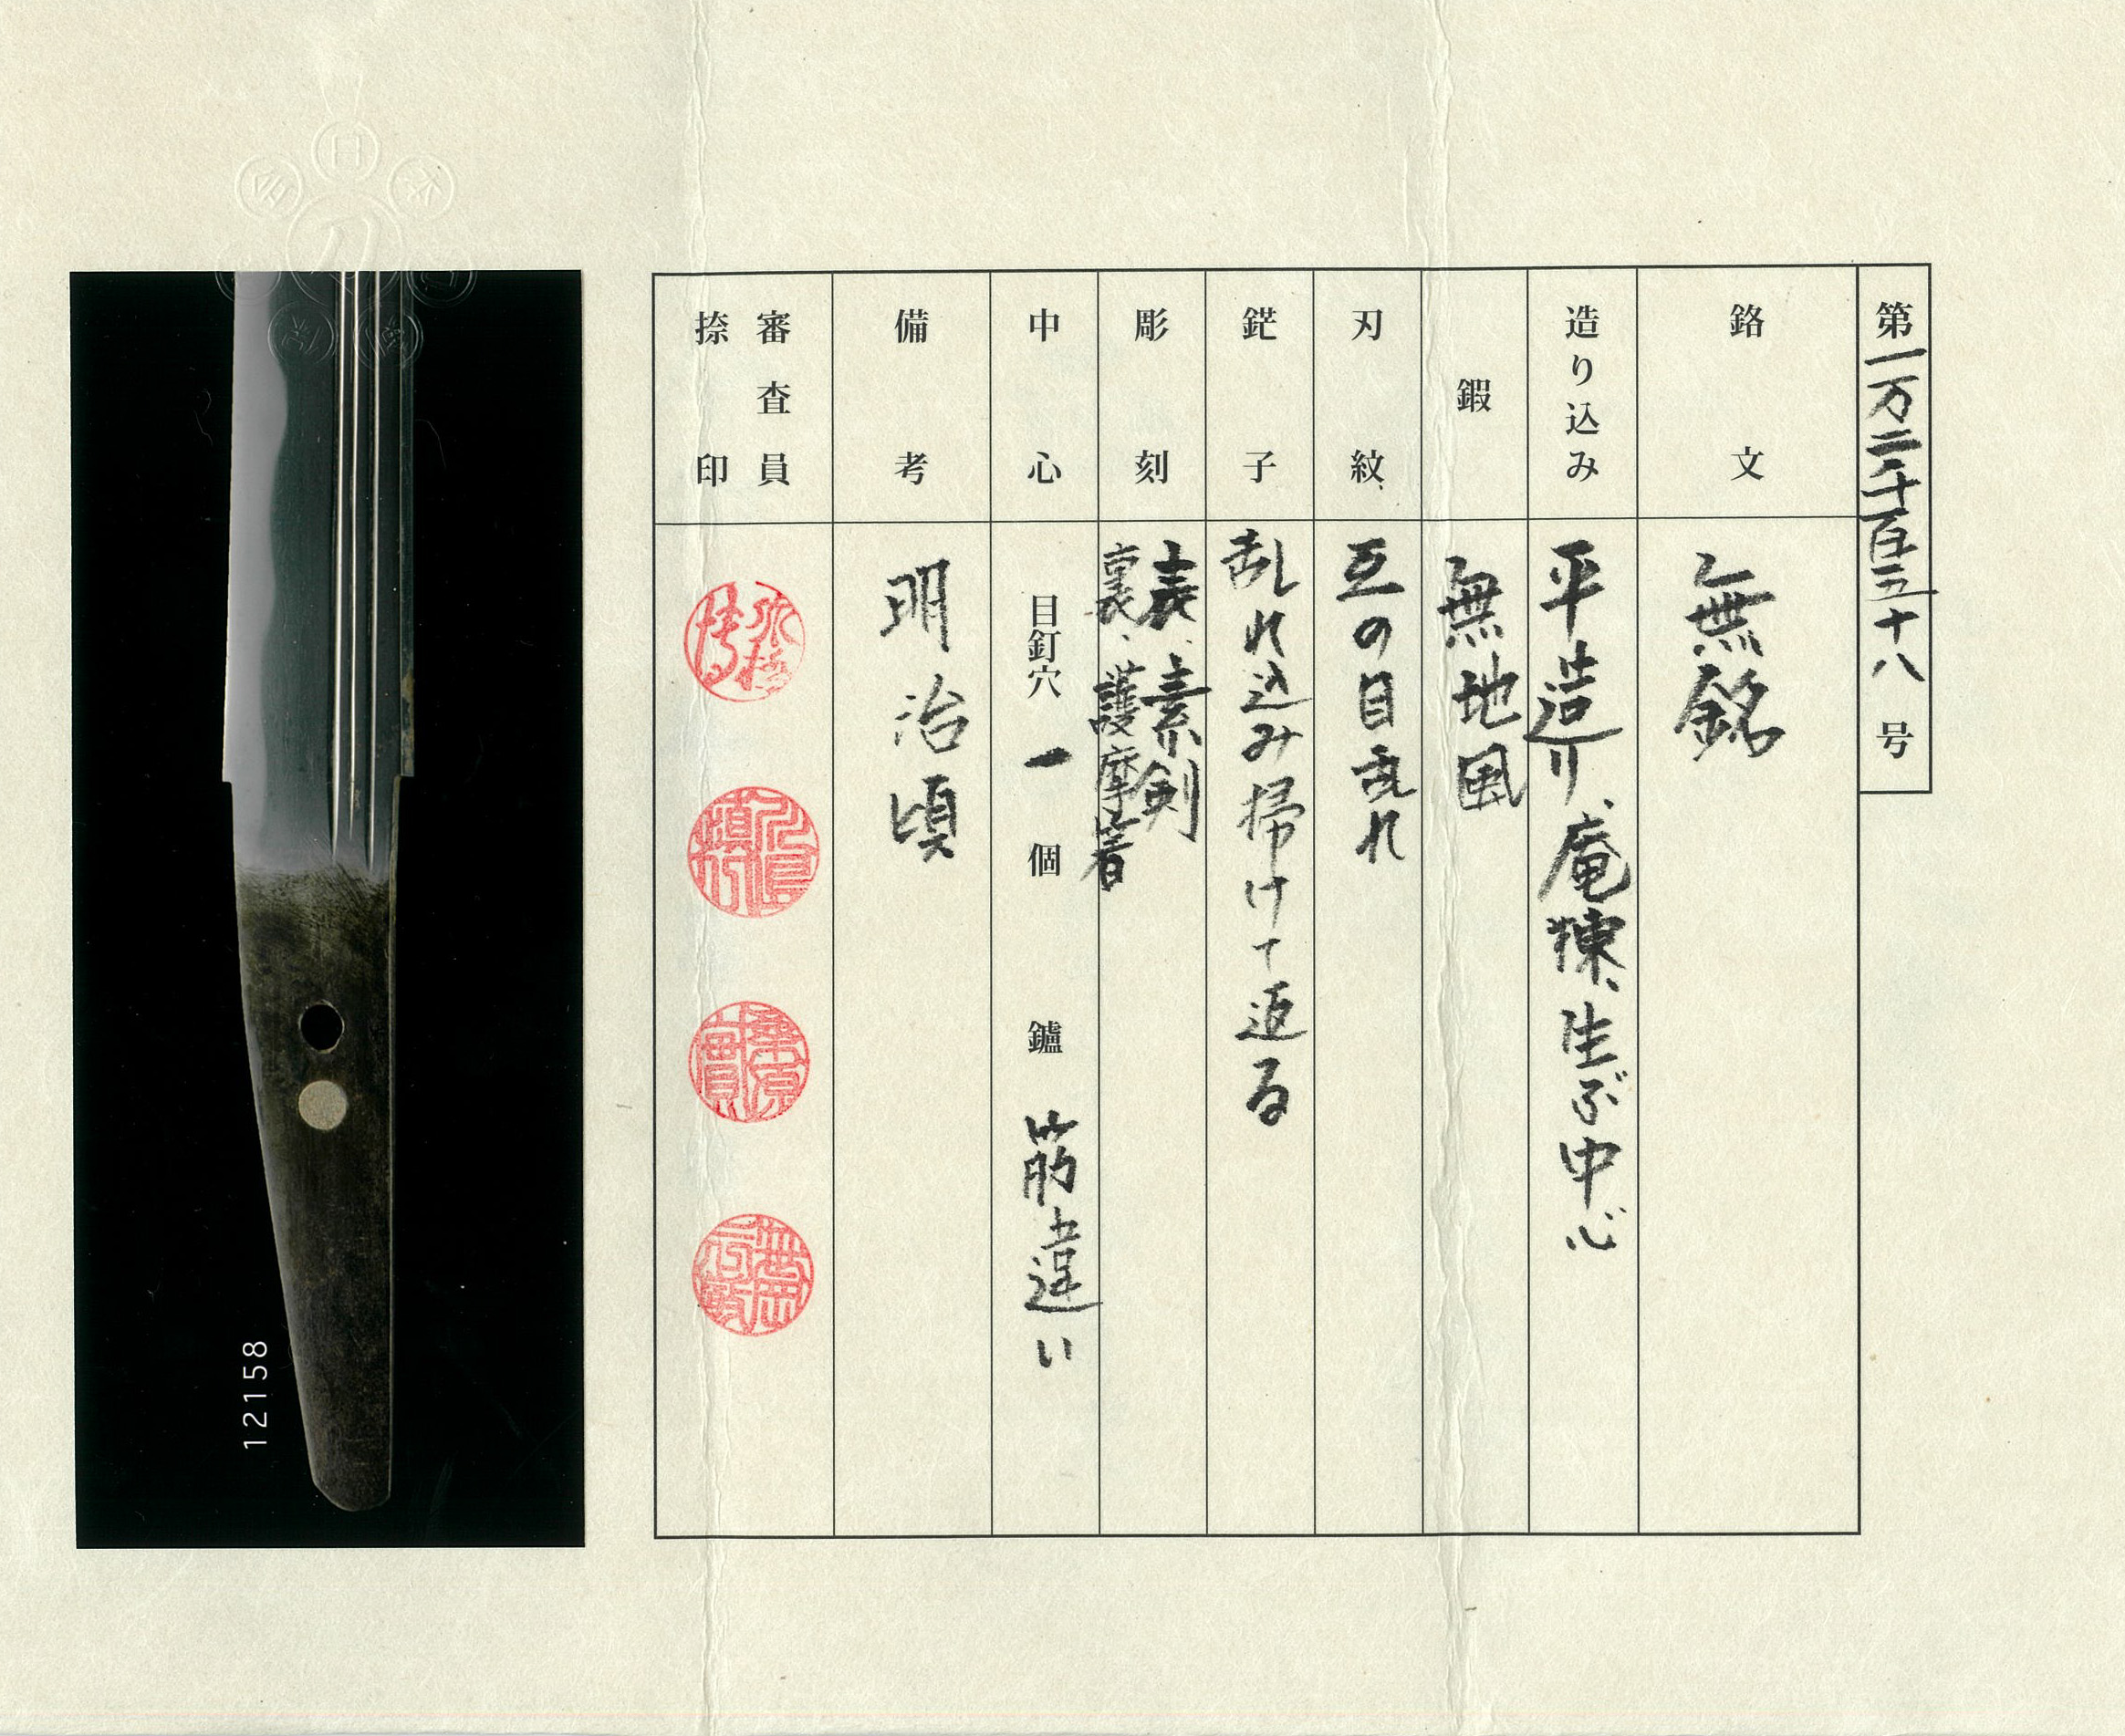 第一万二千百五十八号
銘文
無銘
造り込み
平造り、庵棟、生ぶ中心
鍜
無地風
刃紋
互の目乱れ
鋩子
乱れ込み掃けて返る
彫刻
表、素剣
裏、護摩箸
中心
目釘穴 一 個 鑢 筋違い
備考
明治頃
審査員
捺印
12158